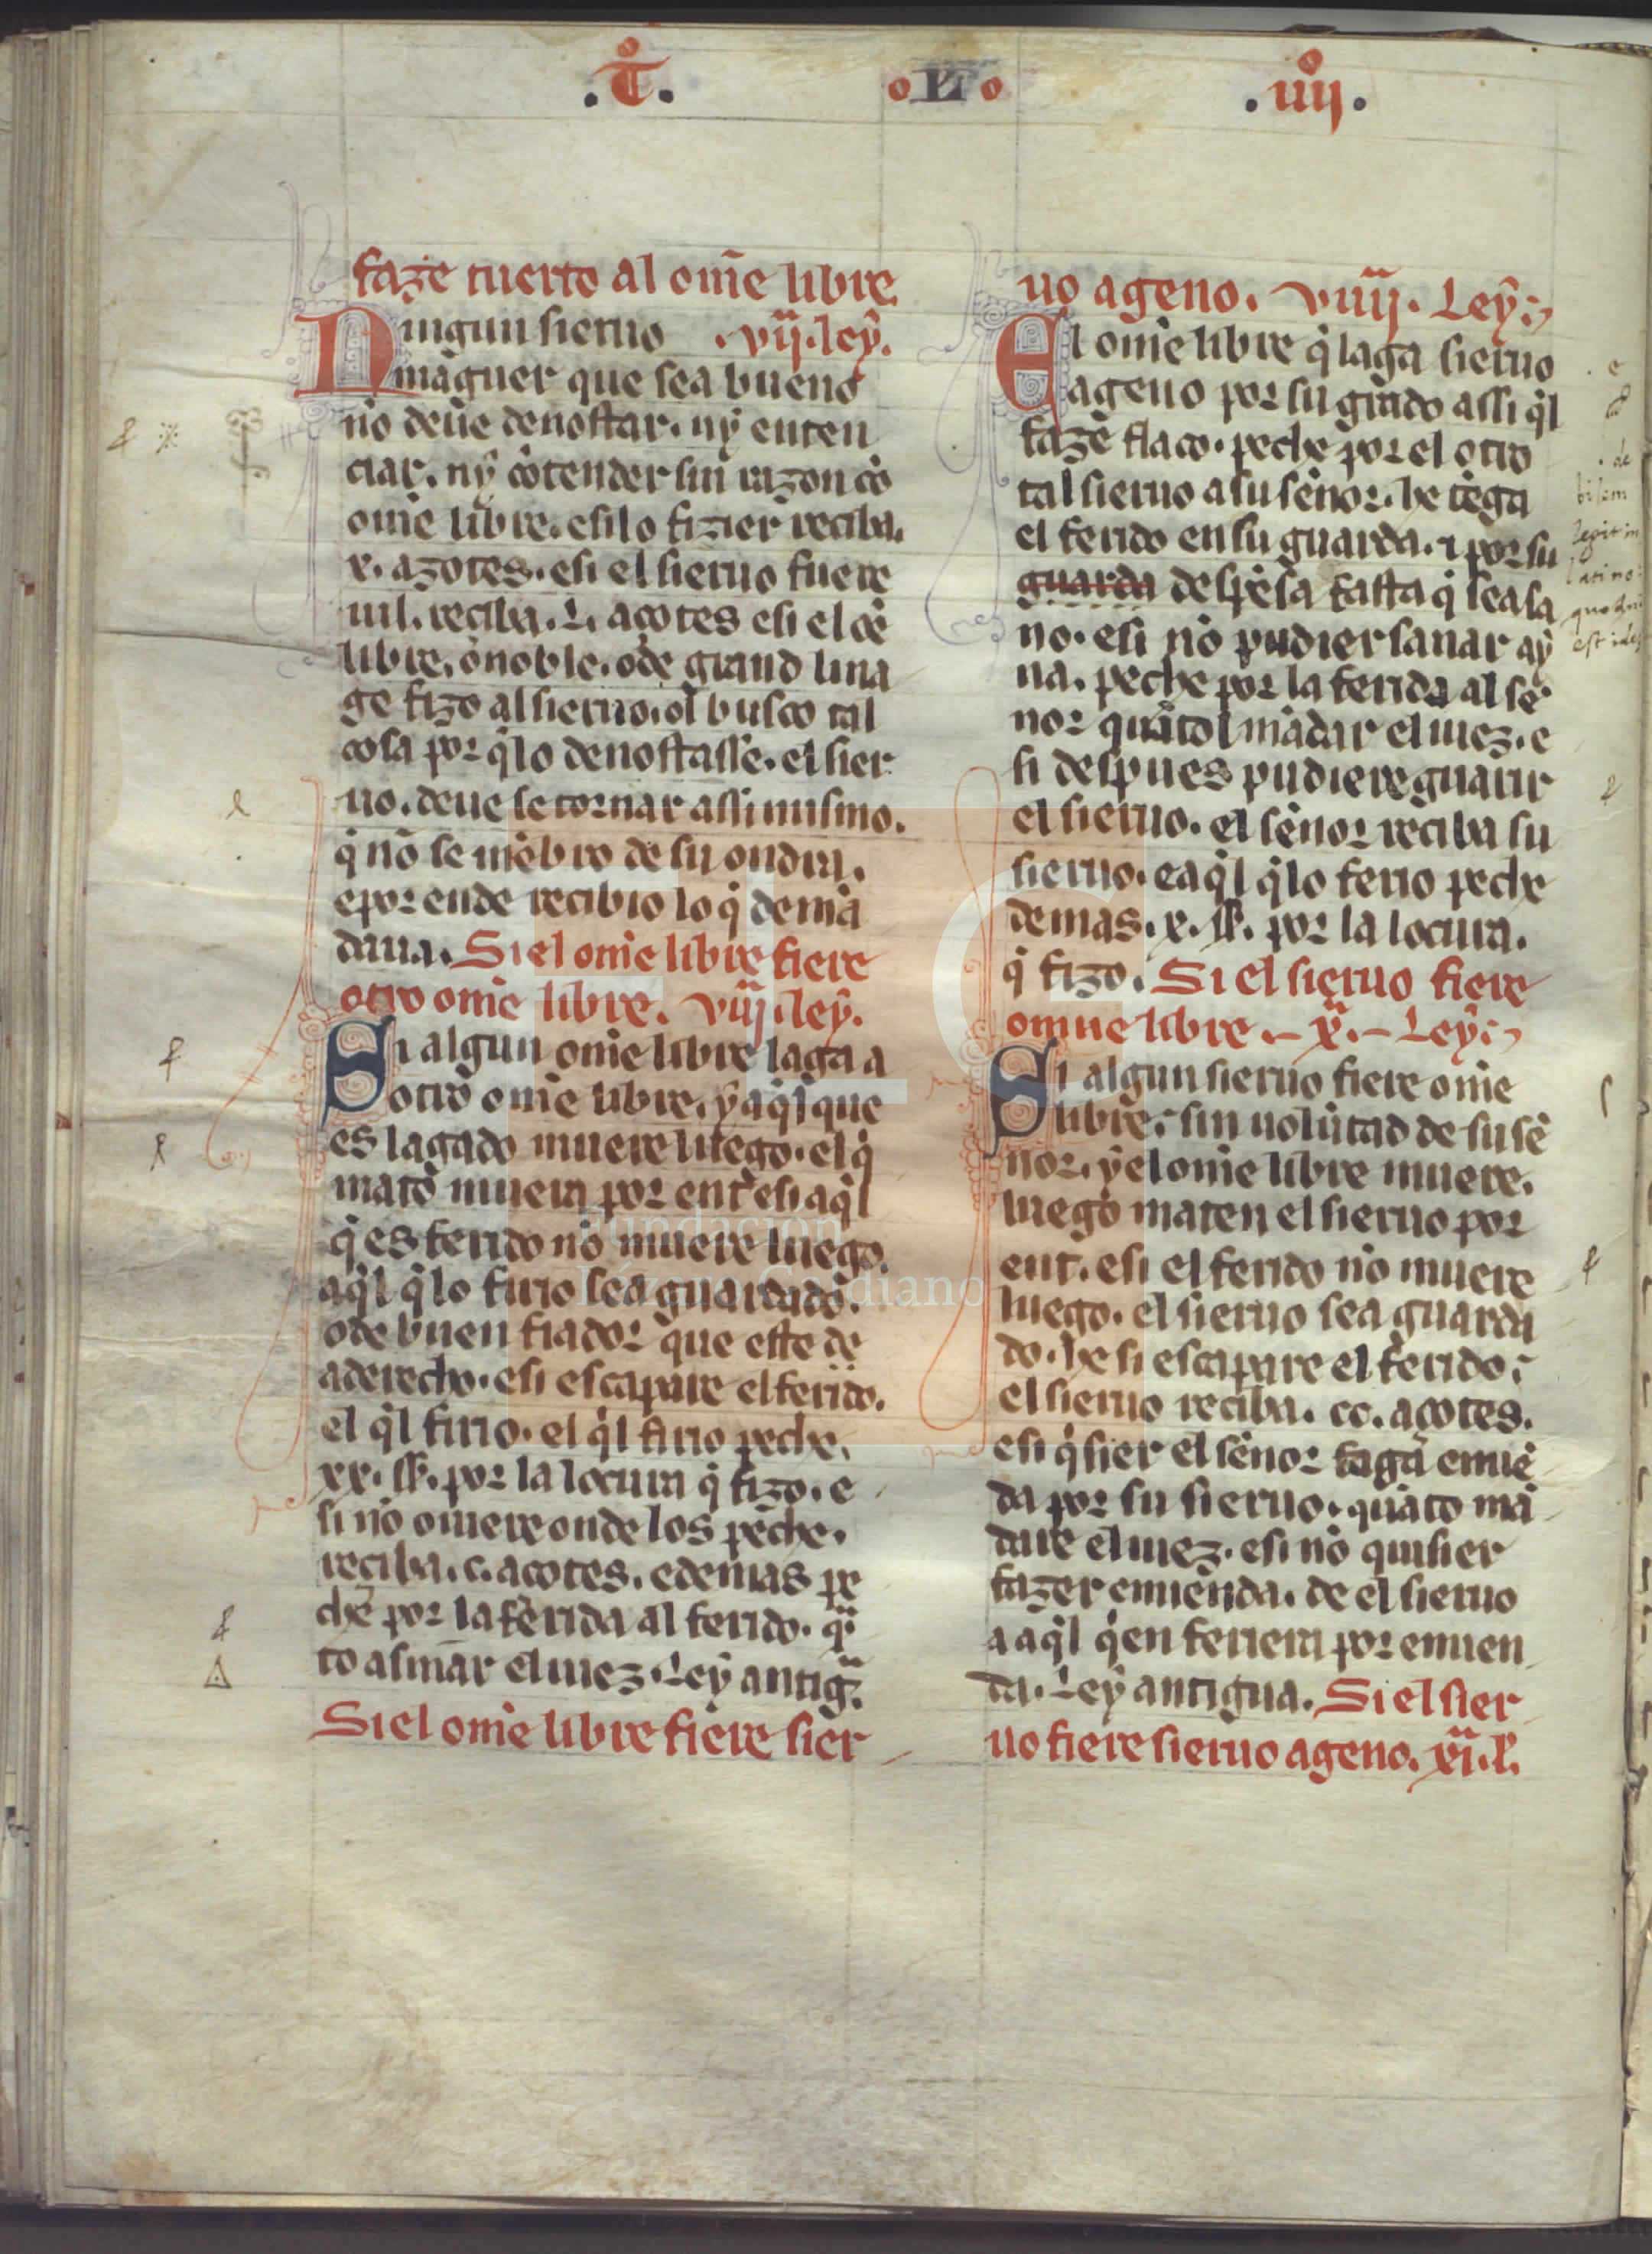 .T͠o. oLIo .iiijº.
faze tuerto al om̃e libre.
Ningun sieruo .vij. ley.
maguer que sea bueno
nõ deue denostar. nỹ enten
ciar. nỹ cõtender sin razon cõ
om̃e libre. e si lo fizier reciba.
x. azotes. e si el sieruo fuere
uil. reciba. L. açotes e si el õe
libre. o noble. o de grand lina
ge fizo al sieruo. ol busco tal
cosa por q̃ lo denostasse. el sier
uo. deue se tornar assi mismo.
q̃ nõ se mẽbro de su ondra.
e por ende recibio lo q̃ demã
daua. Si el om̃e libre fiere
otro om̃e libre. viij. ley.
Si algun om̃e libre laga a
otro om̃e libre. ỹ aq̃l que
es lagado muere luego. el q̃
mato muera por ent̃ e si aq̃l
q̃ es ferido nõ muere luego.
aq̃l q̃ lo firio sea guardado.
o de buen fiador que este de
a derecho. e si escapare el ferido.
el q̃l firio. el q̃l firio peche.
xx. ss̃. por la locura q̃ fizo. e
si nõ ouiere onde los peche.
reciba. c. açotes. e demas pe
che por la ferida al ferido. qã
to asmar el iuez. Ley antigã.
Si el om̃e libre fiere sier
uo ageno. viiij. Ley.
El om̃e libre q̃ laga sieruo
ageno por su grado assi q̃l
faze flaco. peche por el otro
tal sieruo a su señor. he tẽga
el ferido en su guarda. ⁊ por su
guarda despẽsa fasta q̃ sea sa
no. e si nõ pudier sanar aỹ
na. peche por la ferida al se
nor quãtol mãdar el iuez. e
si despues pudiere guarir
el sieruo. el señor reciba su
sieruo. e a q̃l q̃ lo ferio peche
demas. x. ss̃. por la locura.
q̃ fizo. Si el sieruo fiere
omne libre. x. Ley.
Si algun sieruo fiere om̃e
libre. sin uolũtad de su sẽ
nor. ỹ el om̃e libre muere.
luego maten el sieruo por
ent. e si el ferido nõ muere
luego. el sieruo sea guarda
do. he si escapare el ferido.
el sieruo reciba. cc. açotes.
e si q̃sier el señor faga emiẽ
da por su sieruo. quãto mã
dare el iuez. e si nõ quisier
fazer emienda. de el sieruo
a aq̃l q̃en feriera por emien
da. Ley antigua. Si el sier
uo fiere sieruo ageno. xi. l.
Fundación
Lázaro Galdiano